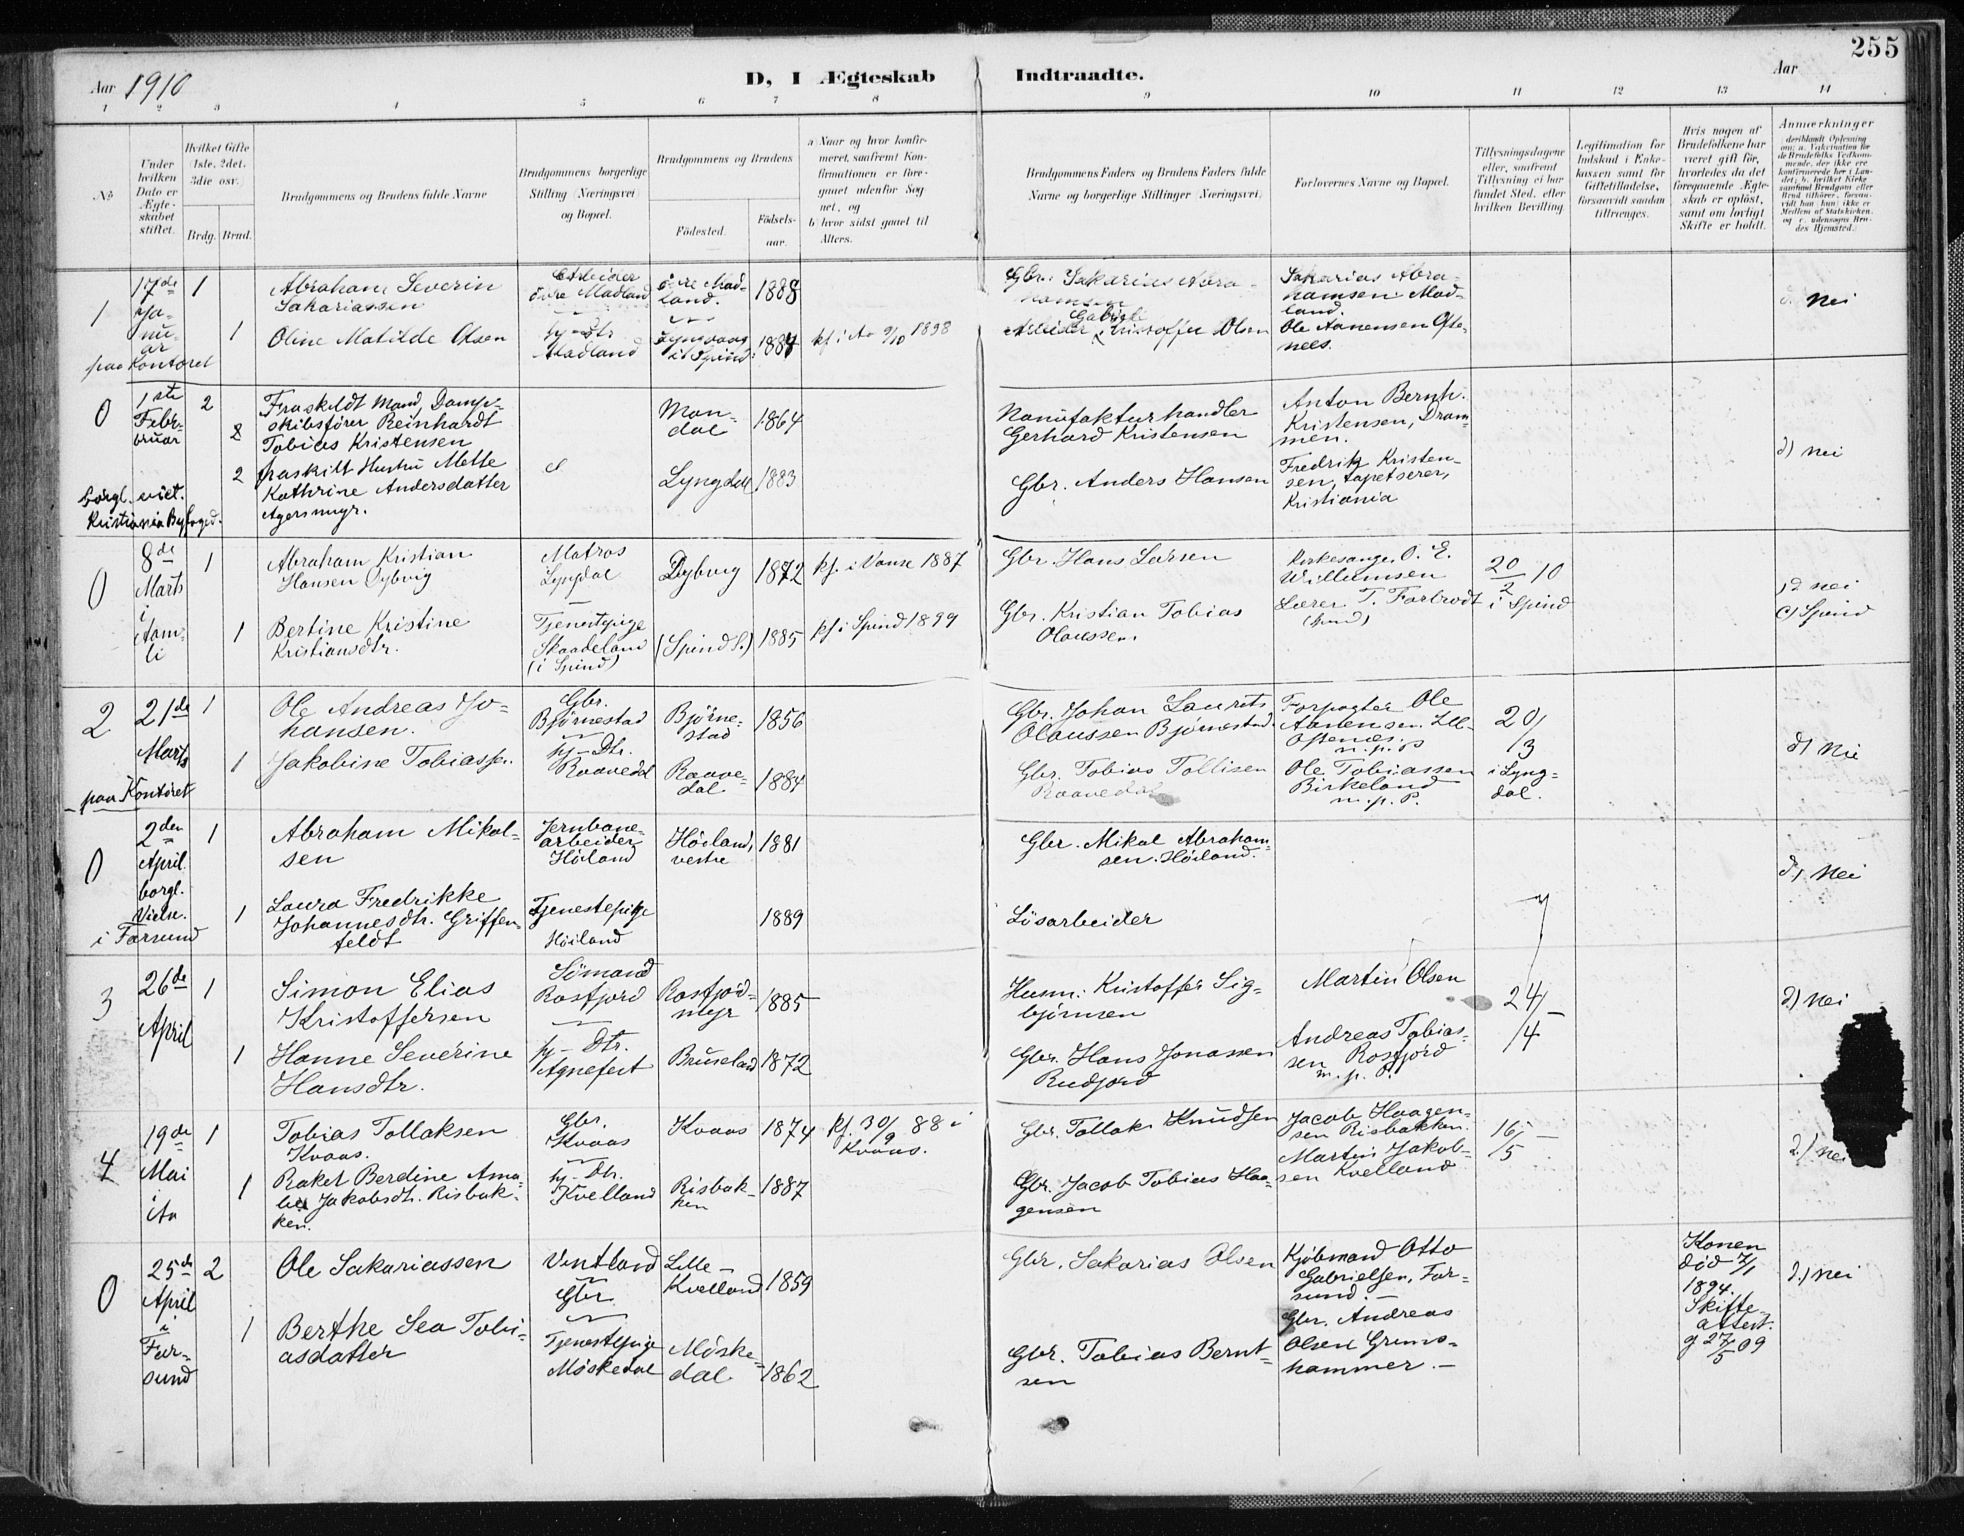 255
Aar 1910
D, I Ægteskab Indtraadte.
Aar
1 2 3 4 5 6 7 8 9 10 11 12 13 14
No
Under hvilken Dato er Ægteskabet stiftet.
Hvilket Gifte (1ste, 2det, 3die osv.
Brdg. Brud.
Brudgommens og Brudens fulde Navne
Brudgommens borgerlige Stilling (Næringsvei) og Bopæl.
Brudgommens og Brudens
Födested.
Födselsaar.
a Naar og hvor konfirmeret, saafremt Konfirmationen er foregaaet udenfor Sognet, og
b hvor sidst gaaet til Alters.
Brudgommens Faders og Brudens Faders fulde Navne og borgerlige Stillinger (Næringsvei).
Forlovernes Navne og Bopæl.
Tillysningsdagene eller, saafremt Tillysning ei har fundet Sted, efter hvilken Bevilling
Legitimation for Indskud i Enkekassen samt for Giftetilladelse, forsaavidt saadan tiltrænges.
Hvis nogen af Brudefolkene har været gift før, hvorledes da det foregaaende Ægteskab er oplöst, samt om lovligt Skifte er holdt.
Anmærkninger
1
17de Januar
paa Kontoret
1
Abraham Severin
Sakariassen
Arbeider
övre Madland
övre Madland.
1888
Gbr. Sakarias Abrahamsen
Sakarias Abrahamsen Madland.
nei
1
Oline Matilde Olsen
hj-Dtr.
Madland
1884
kf i Aa 9/10 1898
Arbeider Gabriel Kristoffer Olsen
Ole Aanensen Ostenees.
0
1ste Februar
2
Fraskildt Mand, Dampskibsfører Reinhardt
Tobias Kristensen
Mandal
1864
Manufakturhandler
Gerhard Kristensen
Anton Bernh.
Kristensen, Drammen.
d) nei
2
fraskilt Hustru Mette
Kathrine Andersdatter
Agersmyr.
Lyngdal
1883
Gbr. Anders Hansen
Fredrik Kristensen, tapetserer,
Kristiania
borgl. viet.
Kristiania Byfoged.
0
8de Marts
i
1
Abraham Kristian
Hansen Dybvig
Matros
Lyngdal
Dybvig
1872
kf. i Vanse 1887
Gbr. Hans Larsen
Kirkesanger O. E.
Willumsen
20/2 10
i Spind
d nei
c) Spind
1
Bertine Kristine
Kristiansdtr.
Tjenestepige
Skaadeland
(i Spind)
(Spind S.)
1885
kf i Spind 1899
Gbr. Kristian Tobias
Olaussen.
Lærer T. Farbrodt
2
21de Marts
paa Kontoret
1
Ole Andreas Johansen.
Gbr.
Bjørnestad
Bjørnestad
1856
Gbr. Johan Laurits
Olaussen Bjørnestad
Forpagter Ole
Aanensen Ll-Ostenes.
m.p.P
20/3
i Lyngdal.
d) Nei
1
Jakobine Tobiassen.
hj-Dtr.
Raavedal
Raavedal
1884
Gbr. Tobias Tollisen
Raavedal
Ole Tobiassen
Birkeland
m.p.P.
0
2den April
borgl. Vielse.
i Farsund
1
Abraham Mikalsen
Jernbanearbeider
Höiland
Höiland, vestre
1881
Gbr. Mikal Abrahamsen. Höiland.
d) Nei
1
Laura Fredrikke
Johannesdtr. Griffenfeldt
Tjenestepige
Höiland
1889
Lösarbeider
3
26de April
1
Simon Elias
Kristoffersen
Sömand
Rosfjord
Rosfjordmyr
1885
Husm. Kristoffer Sigbjörnsen
Martin Olsen
24/4
d) nei
1
Hanne Severine
Hansdtr.
hj-Dtr.
Agnefest
Bruseland
1872
Gbr. Hans Jonassen
Rudjord
Andreas Tobiassen Rosfjord
m.p.P.
4
19de Mai
i Aa
1
Tobias Tollaksen
Kvaas.
Gbr.
Kvaas
Kvaas
1874
kf. 30/9 88 i
Kvaas.
Gbr. Tollak Knudsen
Jacob Haagensen Risbakken.
16/5
d) nei
1
Rakel Berdine Amalie Jakobsdtr. Risbakken.
hj-Dtr.
Kvelland
Risbakken
1887
Gbr. Jacob Tobias Haagensen
Martin Jakobsen Kvelland
0
25de April
i Farsund
2
Ole Sakariassen
Vintland
Gbr.
Lille-Kvelland
1859
Gbr. Sakarias Olsen
Kjöbmand Otto
Gabrielsen, Farsund.
Konen
död 7/1
1894.
Skifteattest.
g 27/5 09
d) nei
1
Berthe Sea Tobiasdatter
Tjenestepige
Möskedal
Möskedal
1862
Gbr. Tobias Berntsen
Gbr. Andreas
Olsen Grimshammer.